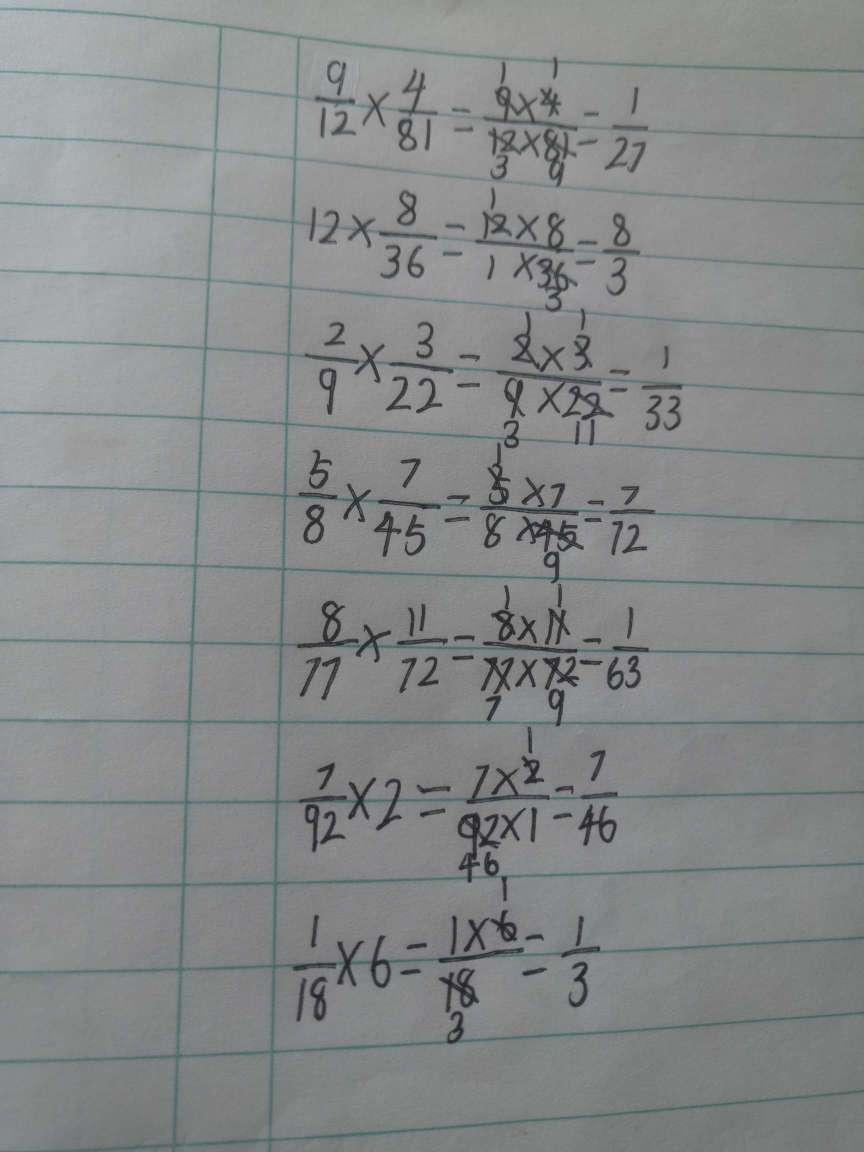 9/12 × 4/81 = (9×4)/(12×81) = 1/27
12 × 8/36 = (12×8)/(1×36) = 8/3
2/9 × 3/22 = (2×3)/(9×22) = 1/33
5/8 × 7/45 = (5×7)/(8×45) = 7/72
8/77 × 11/72 = (8×11)/(77×72) = 1/63
7/92 × 2 = (7×2)/(92×1) = 7/46
1/18 × 6 = (1×6)/18 = 1/3